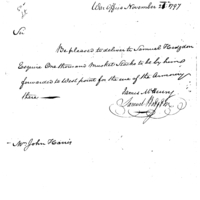 War Office November 28th 1797
Sir
Be pleased to deliver to Samuel Hodgdon
Esquire One thousand Musket Stocks to be by him
forwarded to West point for the use of the Armoury
there
James McHenry
Mr John Harris